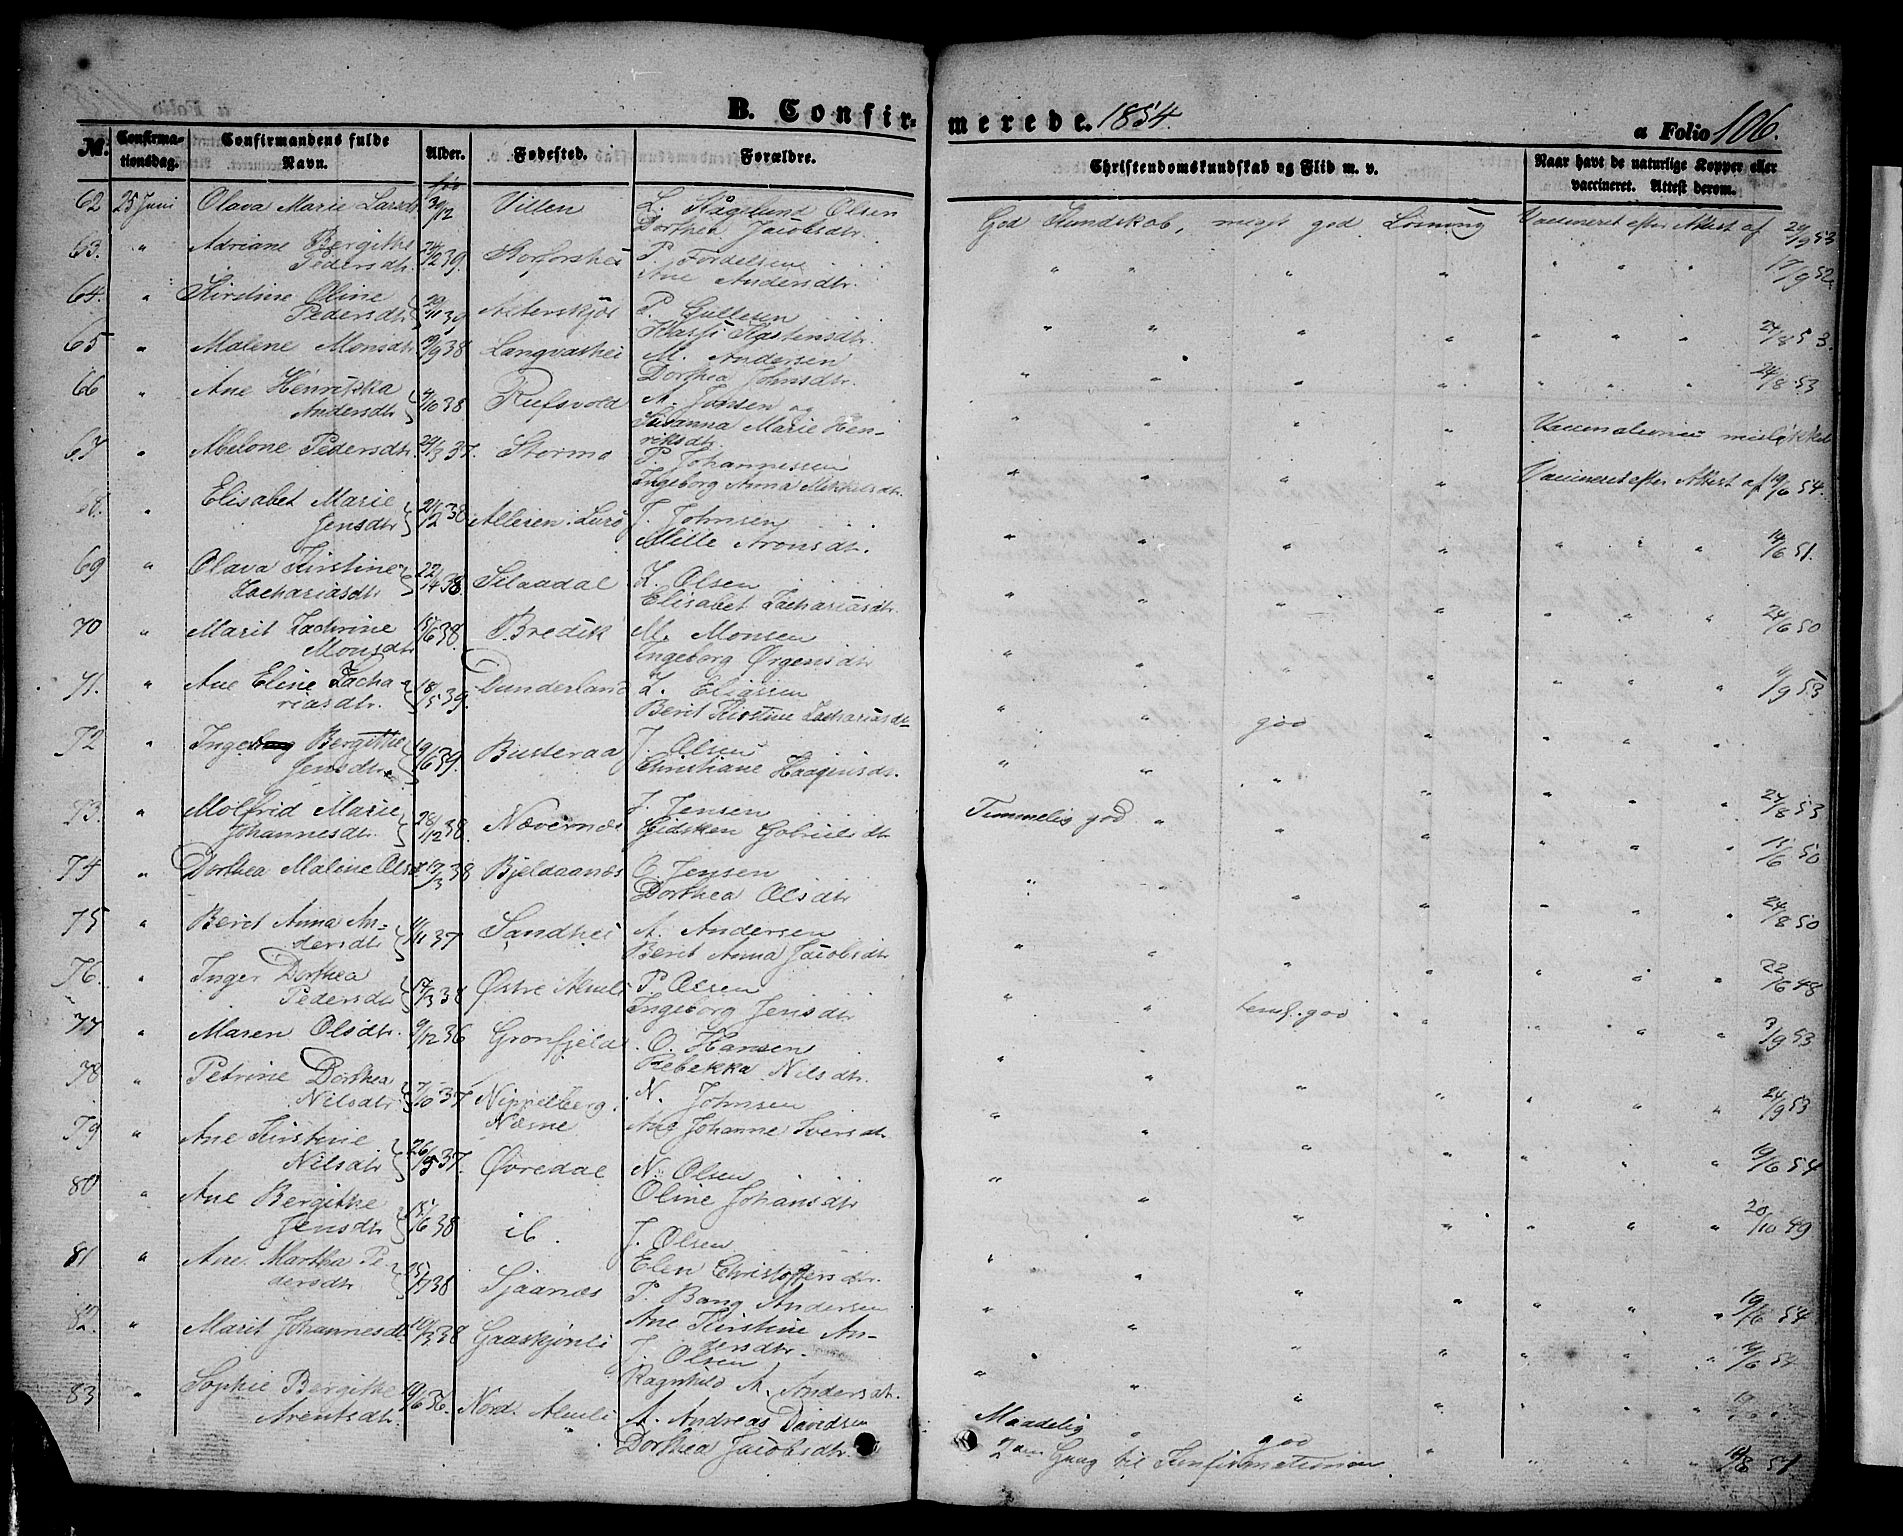 B. Confirmerede. 1854.
a Folio 106.
No. Confirmationsdag. Confirmandens fulde Navn. Alder. Fødested. Forældre. Christendomskundskab og Flid m. v. Naar havt de naturlige Kopper eller vaccineret. Attest derom.
62 25 Juni Olava Marie Larsdtr 30/12 Villen L. Olsen
Dorthea Jacobsdtr. God Kundskab, meget god Læsning Vaccineret efter Attest af 24/9 53
63. " Adriane Bergithe 24/2 39. Storforshei P.
Pedersdtr. Ane Andersdtr. " " " " " " " 17/9 52.
64. " Kirstine Oline 29/11 39 P. Gullesen
Pedersdtr. " " " " " " " 24/8 53.
65 " Malene Monsdtr 19/9 38 Langvashei M. Andersen
Dorthea Johnsdtr. " " " " " " " 24/8 53
66 " Ane Henrikka 4/10 38 A. Jonsen og
Andersdtr Susanna Marie Hen-
riksdtr. " " " Vaccinationen mislykket
67 " Abelone Pedersdtr. 24/3 37. Stormo P. Johannessen
Ingeborg Anna Mikkelsdtr. " " " Vaccineret efter Attest af 19/6 54.
68. " Elisabet Marie 24/2 38 i Lurø J. Johnsen
Jensdtr Mille Aronsdtr. " " " " " " " 14/6 51.
69 " Olava Kirstine 22/4 38 Z. Olsen
Zachariasdtr Elisabet Zachariasdtr. " " " " " " " 24/6 50
70 " Marit Zachrine 15/6 38. Bredek M. Monsen
Monsdtr Ingeborg Ørgensdtr " " " " " " " 9/9 53
71. " Ane Eline Zacha- 18/5 39. Dunderland Z. Eliassen
riasdtr. Berit Kirstine Zachariasdtr " " god " " " "
72 " Bergithe 19/6 39. Busteraa J. Olsen
Jensdtr. Christiane Haagensdtr. " " " " " " " 24/8 53
73. " Molfrid Marie 28/12 38. Nævernæs J. Jensen
Johannesdtr. Gidsken Gabrielsdtr Temmelig god " " " " " 15/6 50
74 " Dorthea Malene Olsdtr 19/3 38 Bjeldaanæs O. Jensen
Dorthea Olsdtr " " " " " " " 24/8 50
75 " Berit Anna An- 11/11 37 Sandhei A. Andersen
dersdtr Berit Anna Jacobsdtr " " " " " " " 22/6 48
76. " Inger Dorthea 17/3 38 Østre Almli P. Olsen
Pedersdtr Ingeborg Jensdtr " " teml. god " " " " 3/9 53
77 " Maren Olsdtr. 9/12 36 Grønfjeld O. Hansen
Rebekka Nilsdtr. " " " " " " " 24/9 53
78 " Petrine Dorthea 7/10 37 Nippelberg. N. Johnsen
Nilsdtr Næsne Ane Johanne Iversdtr " " " " " " " 19/6 54
79 " Ane Kirstine 26/5 37. Øvredal N. Olsen
Nilsdtr Oline Johansdtr " " " " " " " 20/10 49
80 " Ane Bergithe 15/6 38 ib. J. Olsen
Jensdtr Elen Christoffersdtr. " " " " " " " 19/6 54
81 " Ane Martha Pe- 15/7 38 Sjaanæs P. Bang Andersen
dersdtr Ane Kirstine An-
dersdtr. " " " " " " " 19/6 54
82. " Marit Johannesdtr 10/3 38 Gaaskjønli J. Olsen
Ragnhild A. Andersdtr. " " " " " " "
83 " Sophie Bergithe 10/6 36. Nord. Almli A. Andreas Davidsen
Arentsdtr. Dorthea Jacobsdtr. Maadelig " god " " " " 14/8 51
2den Gang til Confirmationen.